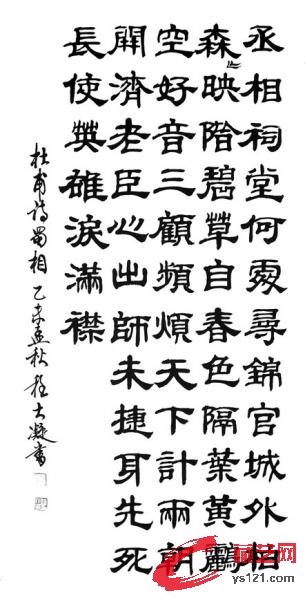 丞相祠堂何處尋錦官城外柏
森〻映階碧草自春色隔葉黃鸝
空好音三顧頻煩天下計兩朝
開濟老臣心出師未捷身先死
長使英雄淚滿襟
杜甫诗蜀相 乙未孟秋 大凝書
藏艺网
ys121.com